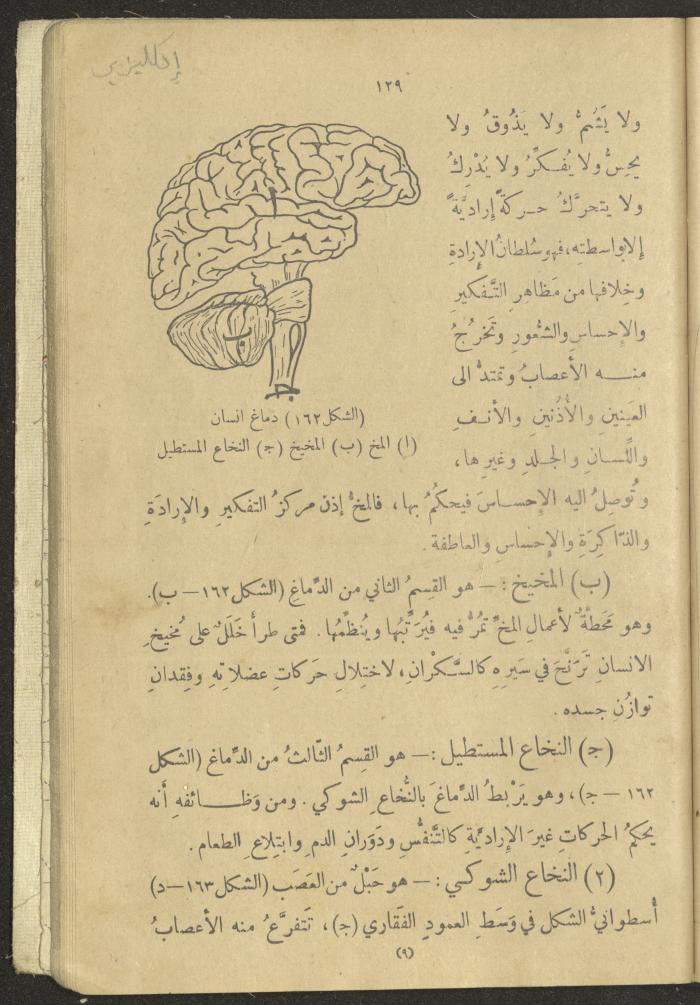 إنكليزي
١٢٩
ولا يَشُمُّ ولا يَذُوقُ ولا
يحِسُّ ولا يُفكِّرُ ولا يُدْرِكُ
ولا يتحرَّكُ حركةً إراديَّةً
إلا بواسطتِه، فهو سُلطانُ الإرادةِ
وخِلافها من مَظاهرِ التَّفكيرِ
والإحساسِ والشُّعورِ وتَخرُجُ
منه الأَعصابُ وتمتدُّ الى
العَينينِ والأُذُنينِ والأنفِ
واللِّسانِ والجلدِ وغيرِها،
وتُوصِلُ اليه الإحساسَ فيحكمُ بها، فالمخُّ إذن مركزُ التفكيرِ والإرادَةِ
والذّاكِرَةِ والإحساسِ والعاطفة.
ب
ج
(الشكل ١٦٢) دماغ انسان
(ا) المخ (ب) المخيخ (ج) النخاع المستطيل
(ب) المخيخ: — هو القِسمُ الثاني من الدِّماغِ (الشكل ١٦٢ — ب).
وهو مَحَطَّةٌ لأعمالِ المخِّ تمُرُّ فيه فيُرَتِّبُها ويُنظِّمُها. فمتى طرأ خَلَلٌ على مُخيخِ
الانسانِ تَرَنَّحَ في سَيرِهِ كالسَّكْرانِ، لاختِلالِ حَرَكاتِ عضلاتِهِ وفِقدانِ
توازُنِ جسده.
(ج) النخاع المستطيل: — هو القِسمُ الثّالثُ من الدِّماغ (الشكل
١٦٢ — ج)، وهو يَرْبطُ الدِّماغَ بالنُّخاعِ الشوكي. ومن وَظائفهِ أنه
يَحكمُ الحركاتِ غيرَ الإراديَّةِ كالتَّنفُّسِ ودَوَرانِ الدمِ وابتِلاعِ الطعام.
(٢) النخاع الشوكي: — هو حَبْلٌ من العَصَب (الشكل ١٦٣ — د)
أُسطوانيُّ الشكل في وَسَطِ العمودِ الفَقاري (ج)، تَتَفرَّعُ منه الأعصابُ
(٩)